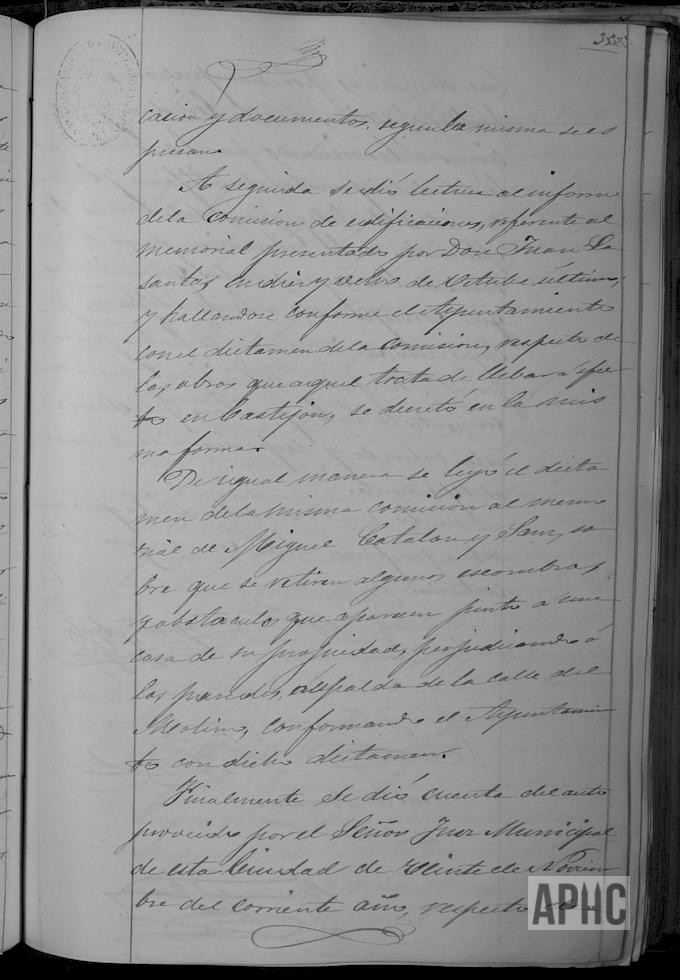 cacion y documentos, segun la misma se es
presan.
A seguida se dió lectura al informe
de la comision de edificaciones, referente al
memorial presentado por Don Juan La
santas, en diez y ocho de Octubre último,
y hallandose conforme el Ayuntamiento
con el dictamen de la comision, respecto de
las obras que aquel trata de llebar a efec
to en Castejon, se decretó en la mis
ma forma.
De igual manera se leyó el dicta
men de la misma comision al memo
rial de Miguel Catalan y Sanz, so
bre que se retiren algunos escombros,
y obstaculos que aparecen junto a una
casa de su propiedad, perjudicando á
las paredes, espalda de la calle del
Molino, conformando el Ayuntamien
to con dicho dictamen.
Finalmente se dió cuenta del auto
proveido por el Señor Juez Municipal
de esta Ciudad de veinte de Noviem
bre del corriente año, respecto
APHC